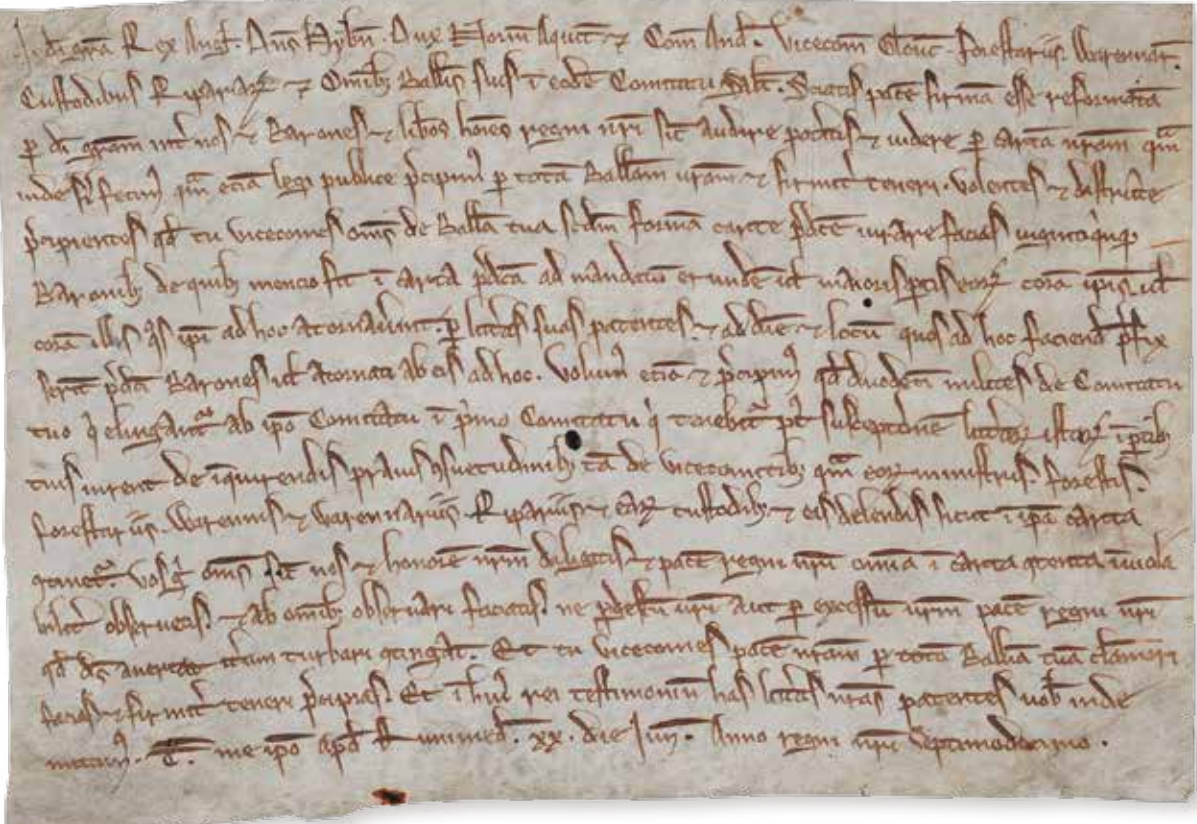 J. di gr̃a Rex Angl̃. Dñs Hyb̃n. Dux Norm̃ Aquit̃ ⁊ Com̃ And̃. Vicecom̃ Glouc̃. Forestariis. Warennar̃.
Custodibus Ripariaꝝ ⁊ Omib; Ballis suis ĩ eodẽ Comitatu Salt̃. Sciatis pacẽ firmã esse reformatã
ꝑ di gr̃am int̃ nos ⁊ Barones ⁊ lib̃os hoĩes regni nr̃i sic̃ audire pot̃itis ⁊ videre ꝑ cartã nr̃am qm̃
inde fi fecim⁹ qm̃ etiã legi publice p̃cipim⁹ ꝑ totã Ballĩam nr̃am ⁊ firmit̃ teneri. Volentes ⁊ districte
p̃cipientes qd̃ tu vicecomes om̃s de Ballĩa tua scd̃m formã carte p̃dc̃e iurare facias viginti quinq;
Baronib; de quib; mencio fit ĩ carta p̃dc̃a ad mandatũ eorundẽ ul̃ maioris ꝑtis eoꝝ corã ip̃is ul̃
corã illis qos ip̃i ad hoc atornav̾int ꝑ litt̃as suas patentes ⁊ ad diẽ ⁊ locũ quos ad hoc faciend̃ p̃fix
erint p̃dc̃i Barones ul̃ atornati ab eis ad hoc. Volum⁹ etiã ⁊ p̃cipim⁹ qd̃ duodecĩ milites de Comitatu
tuo qi eligant̃ ab ip̃o Comitatu ĩ p̃mo Comitatu qi tenebit̃ p̃t susceptionẽ litt̃aꝝ istaꝝ ĩ ꝑtib;
tuis iurent de ĩquirendis pravis ꝯsuetudinib; tã de vicecomitib; qm̃ eoꝝ ministris. Forestis.
Forestariis. Warennis ⁊ Warennariis. Ripariis ⁊ eaꝝ custodib; ⁊ eis delendis sicut ĩ ip̃a carta
ꝯtinet̃. Vos g̃ om̃s sic̃ nos ⁊ honorẽ nr̃m diligitis ⁊ pacẽ regni nr̃i omĩa ĩ carta ꝯtenta ĩviola
bilit̃ observetis. ⁊ ab omib; observari faciatis. ne ꝑ defc̃m vr̃i aut ꝑ excessũ vr̃m pacẽ regni nr̃i
qd̃ ds̃ avertat it̃um turbari ꝯtingat. Et tu vicecomes pacẽ nr̃am ꝑ totã Ballĩa tuã clamari
facias ⁊ firmit̃ teneri p̃cipias. Et ĩ hui⁹ rei testimoniũ has litt̃as nr̃as patentes vob̃ inde
mittim⁹. T̃. me ip̃o apd̃ Runimed̃. xx. die Iuñ. Anno regni nr̃i Septimodecimo.